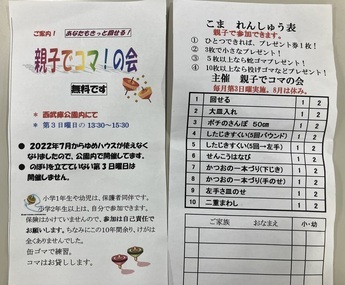 ご案内！
あなたもきっと回せる！
親子でコマ！の会
無料です
＊ 西武庫公園内にて
＊ 第3日曜日の 13:30～15:30
● 2022年7月からゆめハウスが使えなく
なりましたので、公園内で開催してます。
● のぼりを立てていない第3日曜日は
開催しません。
小学1年生や幼児は、保護者同伴です。
小学2年生以上は、自分で参加できます。
保険はかけていませんので、参加は自己責任で
お願いします。ちなみにこの10年間余り、けがは
全くありませんでした。
缶ゴマで練習。
コマはお貸しします。
こま れんしゅう表
親子で参加できます。
① ひとつできれば、プレゼント券1枚！
② 3枚で小さなプレゼント！
③ 5枚以上なら蛇ゴマプレゼント！
④ 10枚以上なら投げゴマなどプレゼント！
主催 親子でコマの会
毎月第3日曜実施。8月は休み。
1 回せる 1 2
2 大皿入れ 1 2
3 ポチのさんぽ 50㎝ 1 2
4 したじきすくい(5回バウンド) 1 2
5 したじきすくい(5回→左手) 1 2
6 せんこうはなび 1 2
7 かつおの一本づり(下じき) 1 2
8 かつおの一本づり(手のせ) 1 2
9 左手さ皿のせ 1 2
10 二重まわし 1 2
ご家族 おなまえ 小・幼